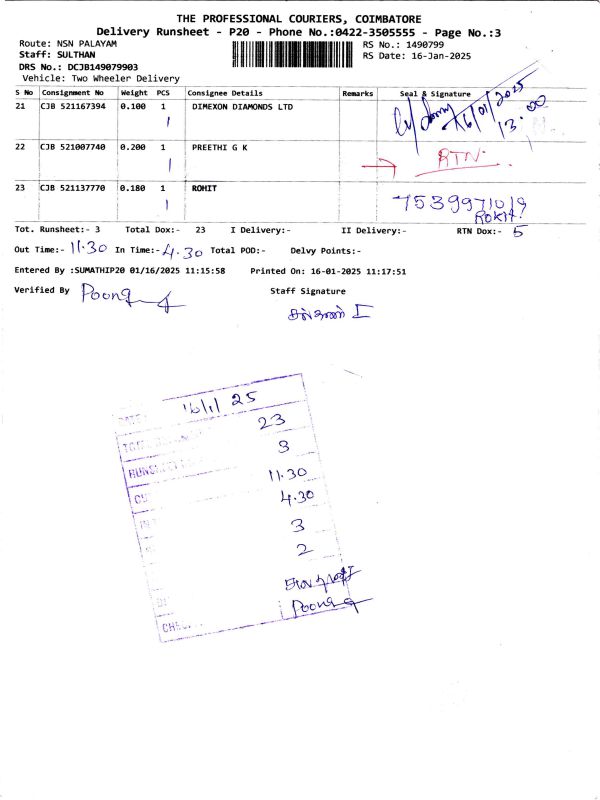 THE PROFESSIONAL COURIERS, COIMBATORE
Delivery Runsheet - P20 - Phone No.:0422-3505555 - Page No.:3
Route: NSN PALAYAM
RS No.: 1490799
Staff: SULTHAN
RS Date: 16-Jan-2025
DRS No.: DCJB149079903
Vehicle: Two Wheeler Delivery
S No Consignment No Weight PCS Consignee Details Remarks Seal & Signature
21 CJB 521167394 0.100 1 DIMEXON DIAMONDS LTD 16/01/2025
13.00
22 CJB 521007740 0.200 1 PREETHI G K RTN
23 CJB 521137770 0.180 1 ROHIT 7539971019
ROHIT
Tot. Runsheet:- 3 Total Dox:- 23 I Delivery:- II Delivery:- RTN Dox:- 5
Out Time:- 11.30 In Time:- 4.30 Total POD:- Delvy Points:-
Entered By :SUMATHIP20 01/16/2025 11:15:58 Printed On: 16-01-2025 11:17:51
Verified By Poong Staff Signature
சுல்தான் I
16/1/25
23
3
11.30
4.30
3
2
Poong